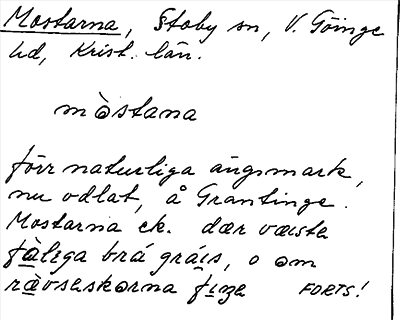 Mostarna, Stoby sn, V. Göinge
hd, Krist. län.
mòstana
förr naturliga ängsmark,
nu odlat, å Grantinge.
Mostarna ek. dær væista
fàliga brá gráis, o om
rævsaskorna fiza FORTS!